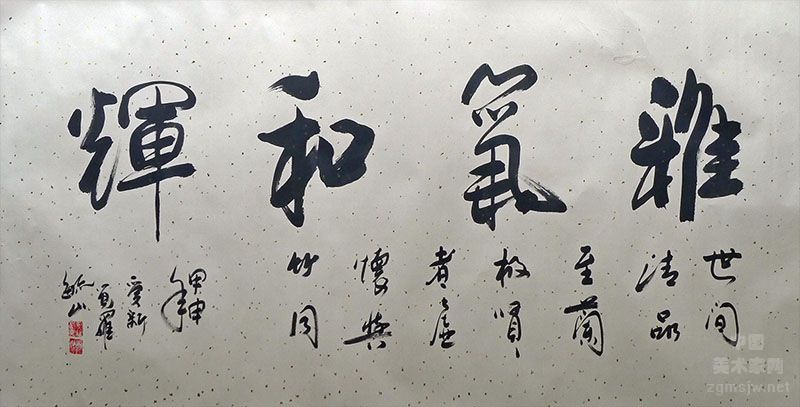 雅氣和輝
世间
清品
至蘭
极賢
者虛
懷與
竹同
甲申年
愛新
覺羅
毓山
中国
美术家网
zgmsjw.net